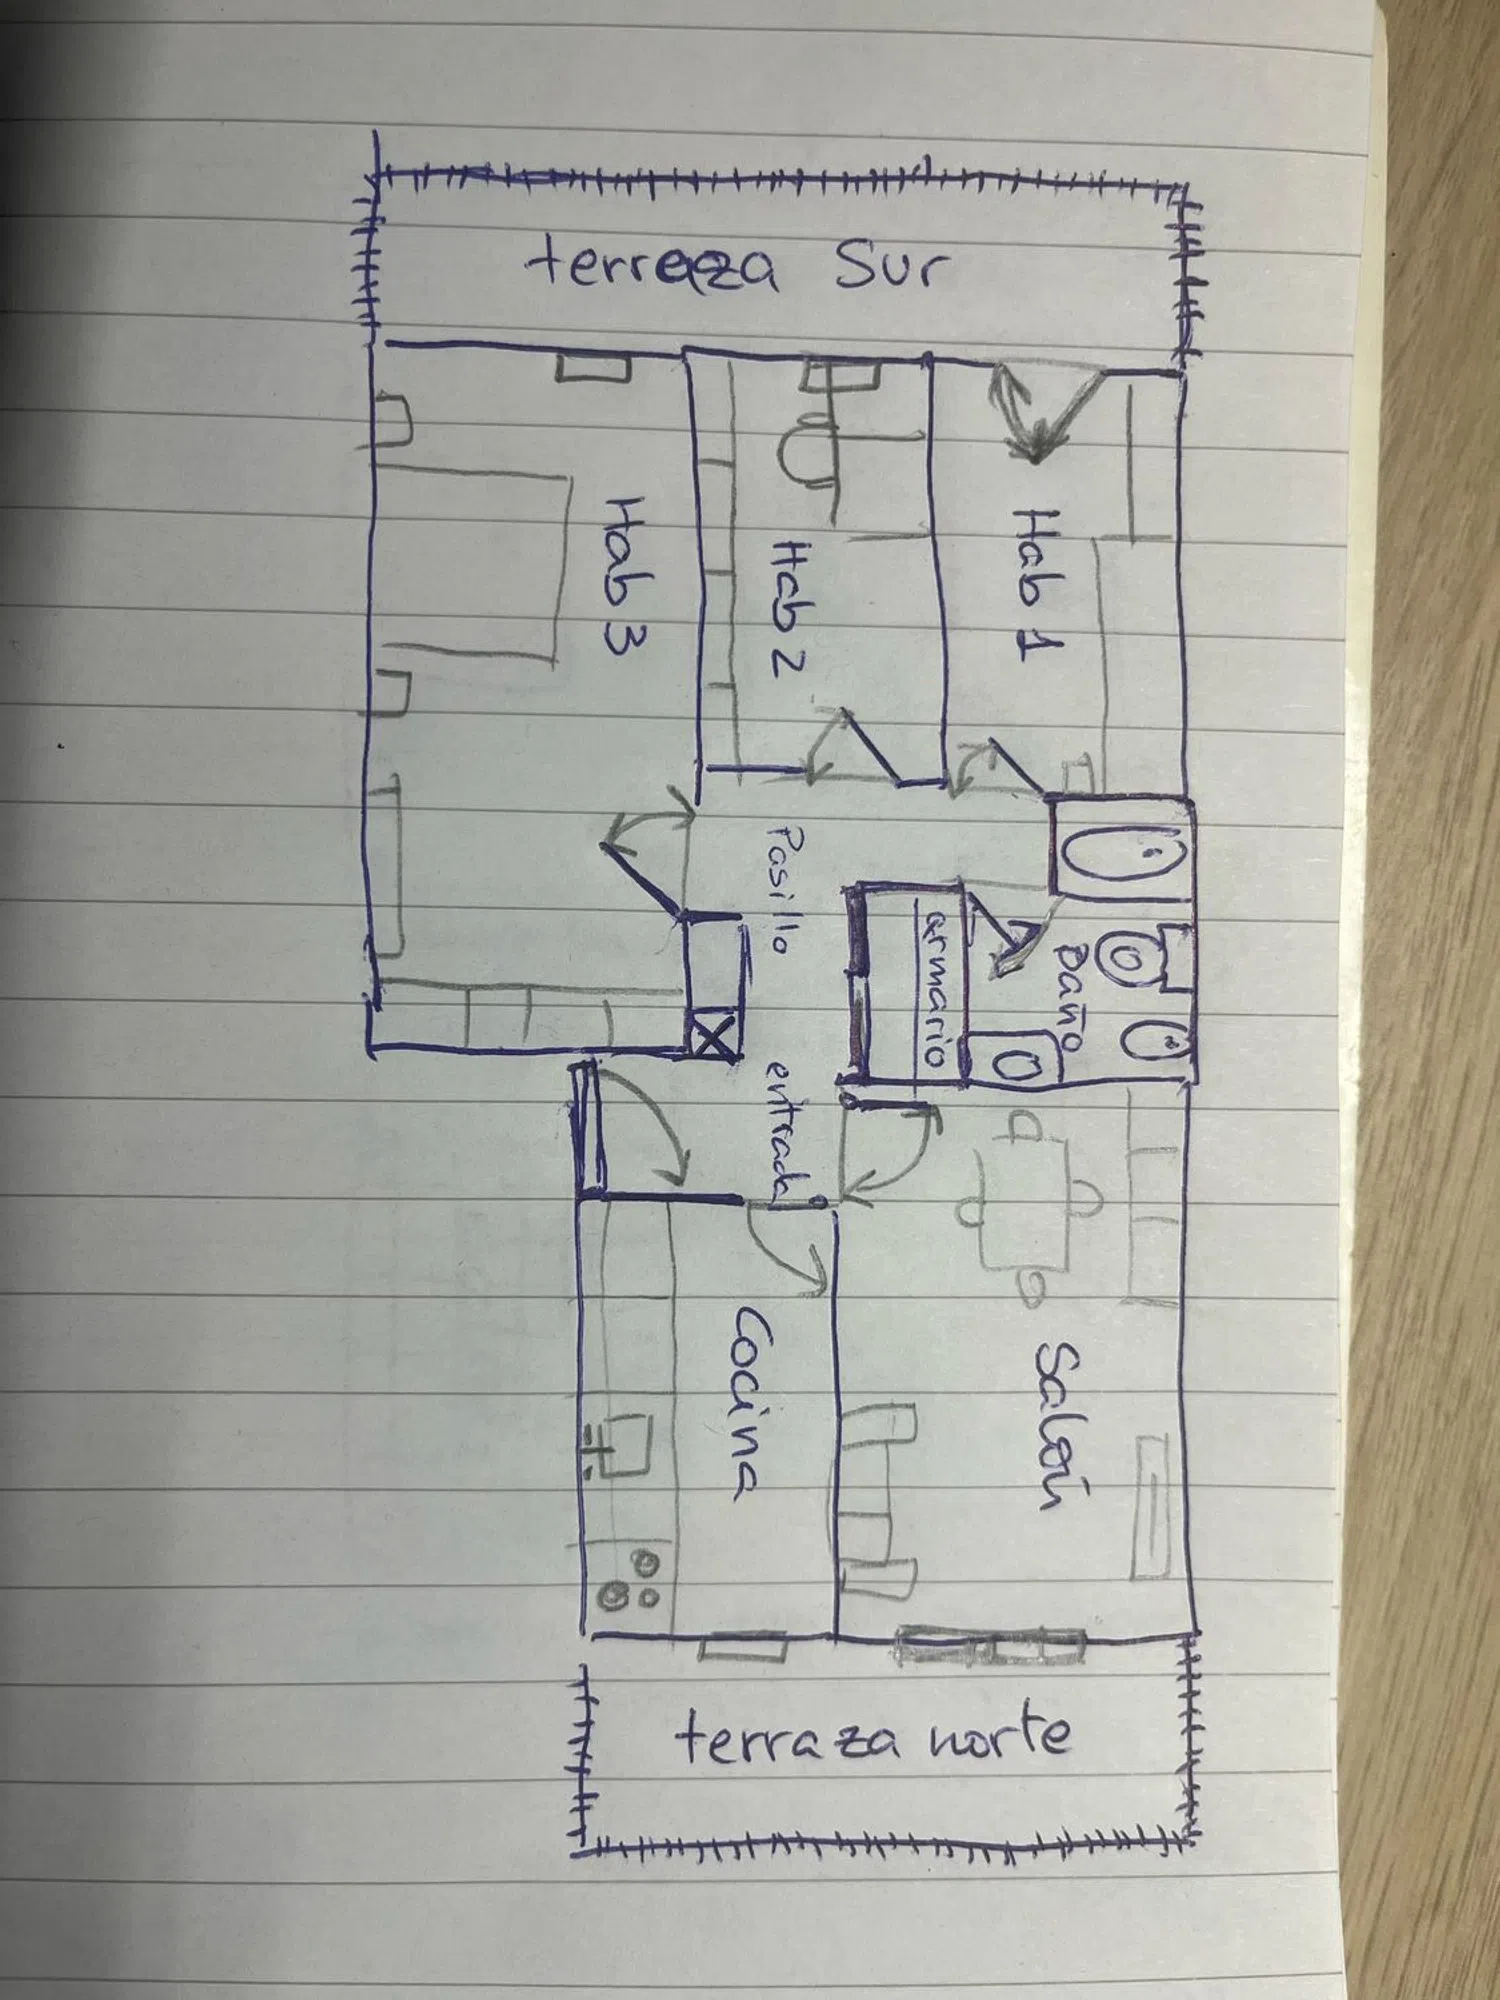 terraza Sur
Hab 3
Hab 2
Hab 1
Pasillo
armario
baño
entrada
Cocina
Salón
terraza norte